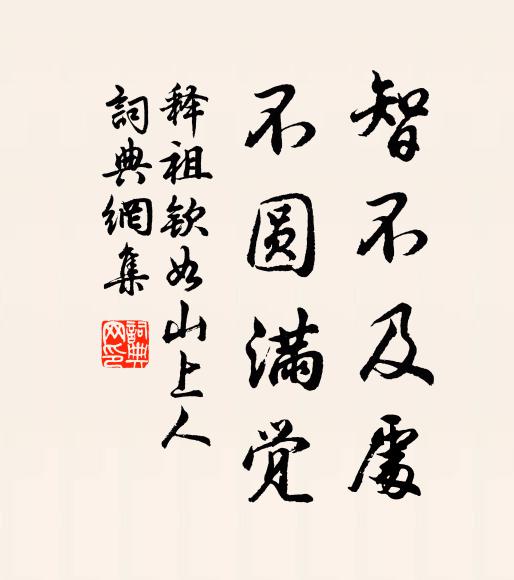 智不及處
不圆滿觉
释祖钦如山上人
詞典網集
詞典網印